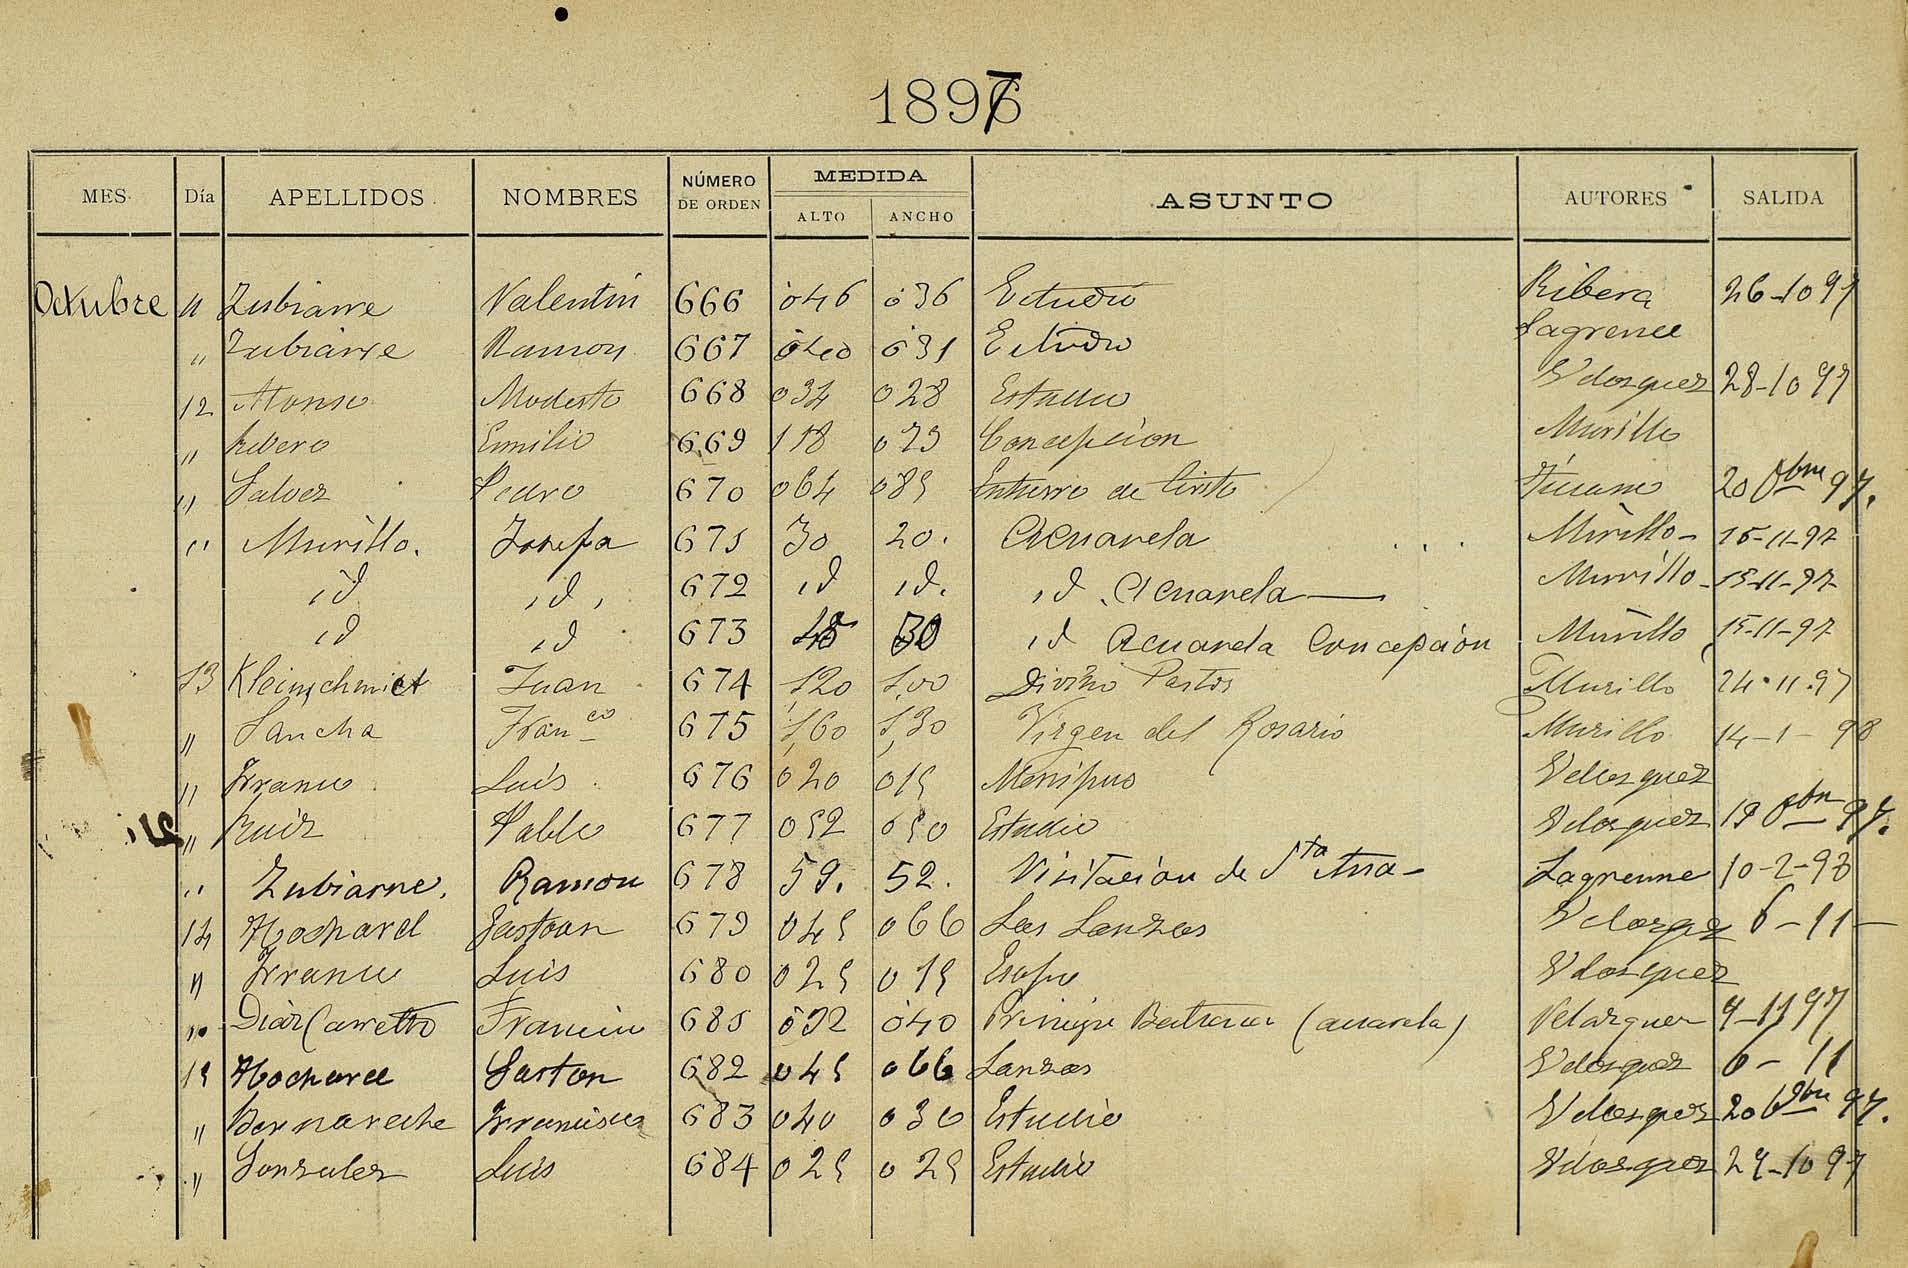 1897
MES Día APELLIDOS NOMBRES NÚMERO DE ORDEN MEDIDA ALTO ANCHO ASUNTO AUTORES SALIDA
Octubre 11 Zubiarre Valentin 666 046 036 Estudio Ribera 26-10 97
" Zubiarre Ramon 667 040 031 Estudio Lagrenee
12 Alonso Modesto 668 034 028 Estudio Velosquez 28-10 97
" Rivero Emilio 669 118 079 Concepcion Murillo
" Galvez Pedro 670 064 085 Entierro de Cristo 20 97.
" Murillo. Josefa 671 30 20. Acuarela Murillo- 15-11-97
id id, 672 id id. id. Acuarela Murillo- 15-11-97
id id 673 45 30 id Acuarela Concepción Murillo 15-11-97
13 Kleinschmidt Juan 674 1,20 1,00 Divino Pastor Murillo 24.11.97
" Sancha Fran^co 675 1,60 1,30 Virgen del Rosario Murillo 14-1-98
" Luis 676 020 015 Menipus Velosquez
" Ruiz Pablo 677 052 050 Estudio Velosquez 19 97.
" Zubiarre, Ramon 678 59. 52. Visitación de S^ta Ana- Lagrenne 10-2-98
14 Hochard Gastoan 679 045 066 Las Lanzas Velazqez 6-11-
" Luis 680 025 015 Esopo Velosquez
" Diaz Carretto 681 052 040 Principe (acuarela) Velazquez 9-11 97
15 Hochard Gaston 682 045 066 Lanzas Velosquez 6-11
" Francisco 683 040 030 Estudio Velosquez 20 97.
" Gonzalez Luis 684 025 025 Estudio Velosquez 29-10 97